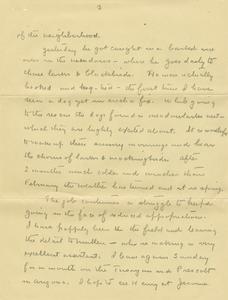 3
of the neighborhood.
Yesterday he got caught in a barbed wire
over in the meadows - where he goes daily to
chase larks & blackbirds. He was actually
hooked and - the first time I have
seen a dog yet in such a fix. While going
to the rescue the dogs found a meadowlarks nest
which they are highly excited about. It is
to wake up these mornings and hear
the chorus of larks & mockingbirds. After
2 months much colder and than
February the weather has turned and it is spring.
The job continues a struggle to keep
going in the face of reduced appropriations.
I have happily been in the field and leaving
the detail to - who is making a very
excellent assistant. I leave again Sunday
for a month on the Tusayan and Prescott
in Arizona. I hope to see H any at Jerome